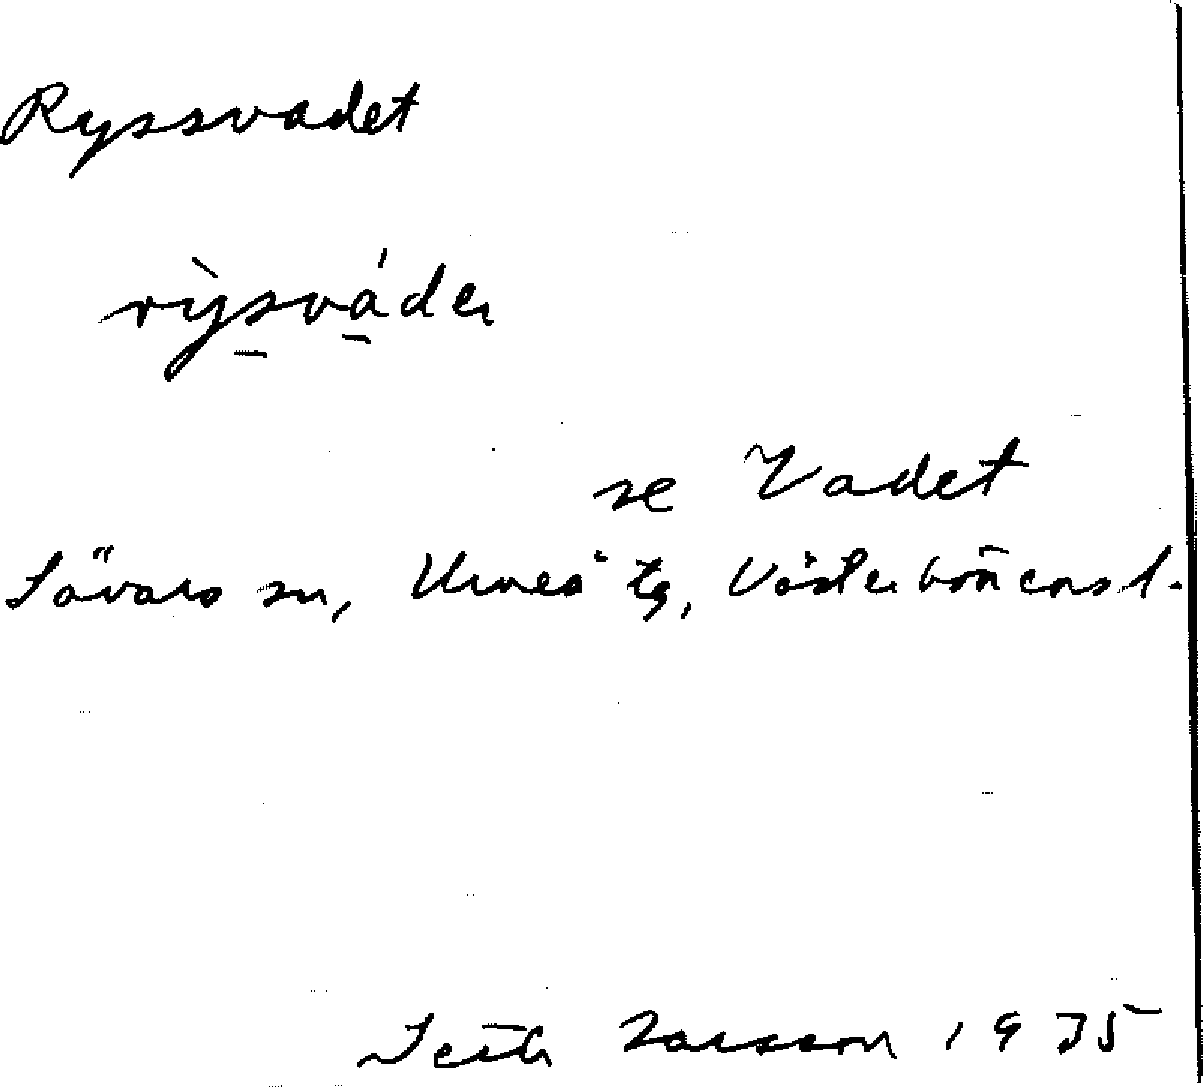 Ryssvadet
rỳsváden
se Vadet
Sävars sn, Umeå tg, Västerbottens l.
Seth Larsson 1935